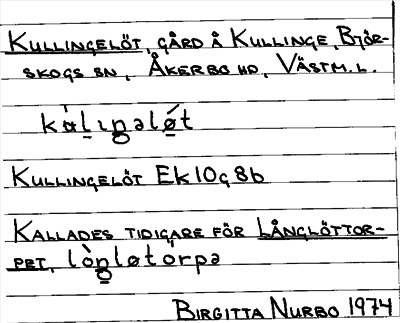 KULLINGELÖT, GÅRD Å KULLINGE, BJÖR-
SKOGS SN, ÅKERBO HD, VÄSTM.L.
kàḷıŋəlǿ̣t
KULLINGELÖT Ek10g8b
KALLADES TIDIGARE FÖR LÅNGLÖTTOR-
PET, lòŋløtörpə
BIRGITTA NURBO 1974